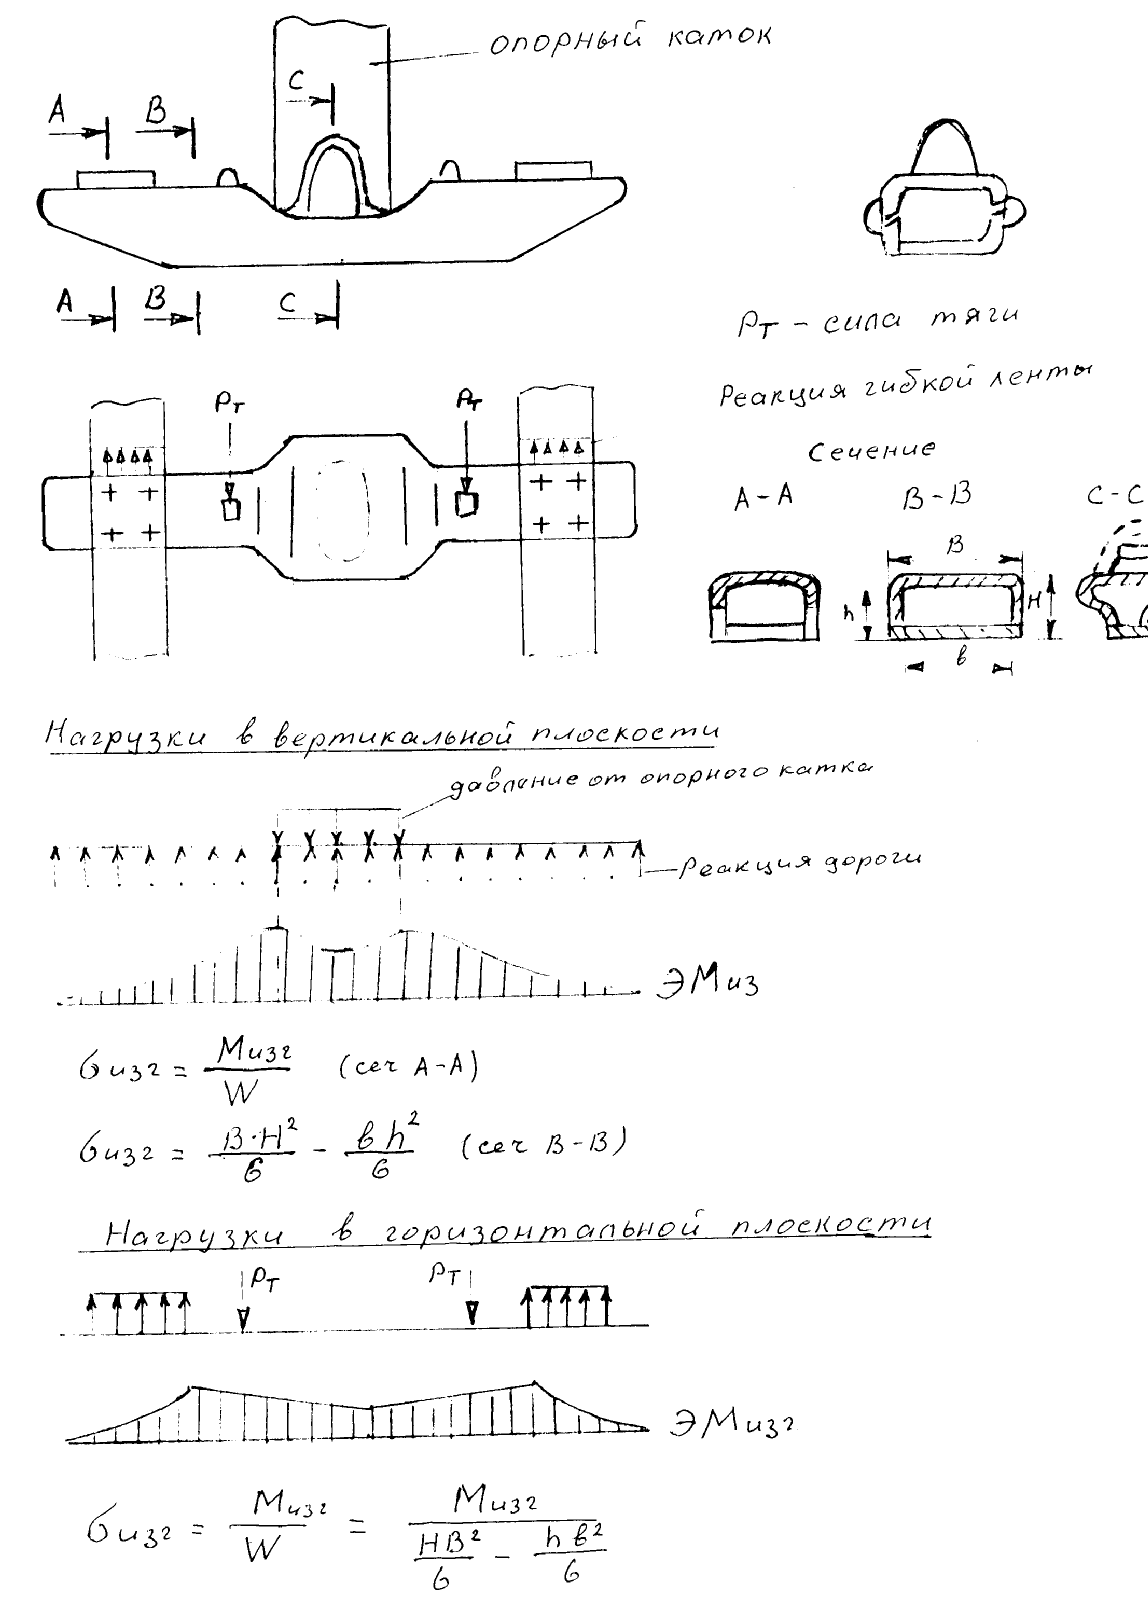 опорный каток
С
А В
А В С
Рт – сила тяги
Рт Рт
Реакция гибкой ленты
Сечение
А-А В-В С-С
В
h Н
в
Нагрузки в вертикальной плоскости
давление от опорного катка
Реакция дороги
ЭМиз
σизг = Мизг / W (сеч А-А)
σизг = В·Н² / 6 – вh² / 6 (сеч В-В)
Нагрузки в горизонтальной плоскости
Рт Рт
ЭМизг
σизг = Мизг / W = Мизг / (НВ² / 6 – hв² / 6)